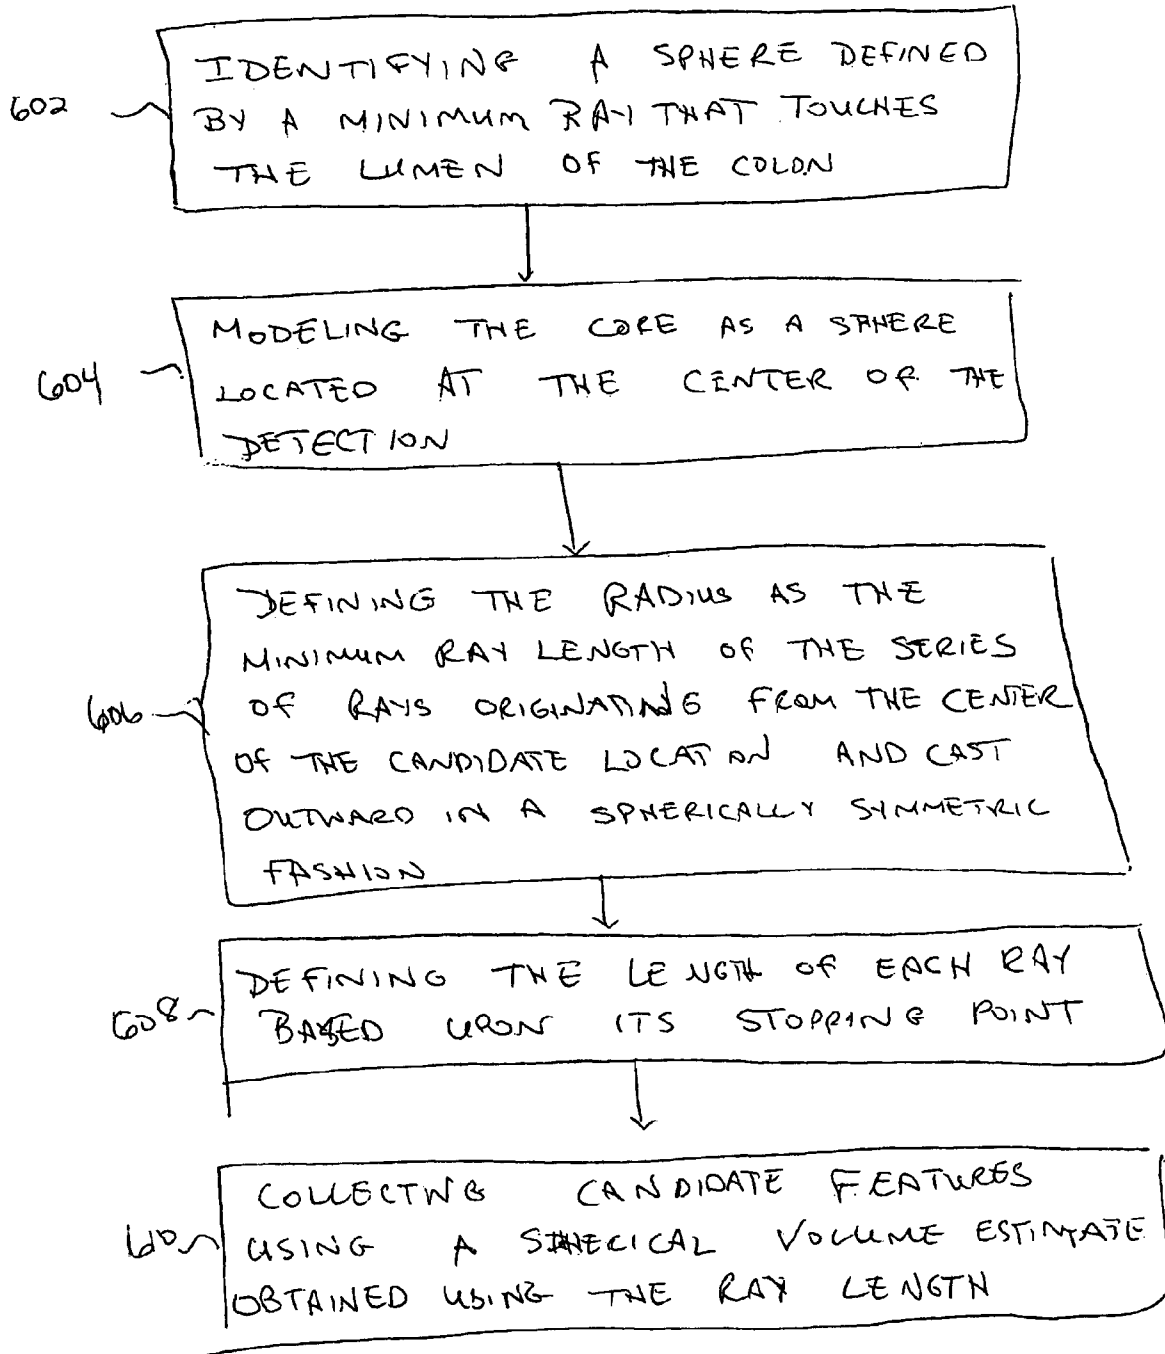 602
IDENTIFYING A SPHERE DEFINED
BY A MINIMUM RAY THAT TOUCHES
THE LUMEN OF THE COLON
604
MODELING THE CORE AS A SPHERE
LOCATED AT THE CENTER OF THE
DETECTION
606
DEFINING THE RADIUS AS THE
MINIMUM RAY LENGTH OF THE SERIES
OF RAYS ORIGINATING FROM THE CENTER
OF THE CANDIDATE LOCATION AND CAST
OUTWARD IN A SPHERICALLY SYMMETRIC
FASHION
608
DEFINING THE LENGTH OF EACH RAY
BASED UPON ITS STOPPING POINT
610
COLLECTING CANDIDATE FEATURES
USING A SPHERICAL VOLUME ESTIMATE
OBTAINED USING THE RAY LENGTH